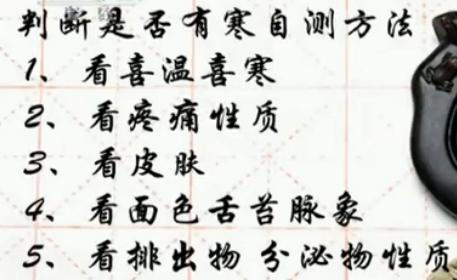 判断是否有寒自测方法
1、看喜温喜寒
2、看疼痛性质
3、看皮肤
4、看面色舌苔脉象
5、看排出物 分泌物性质